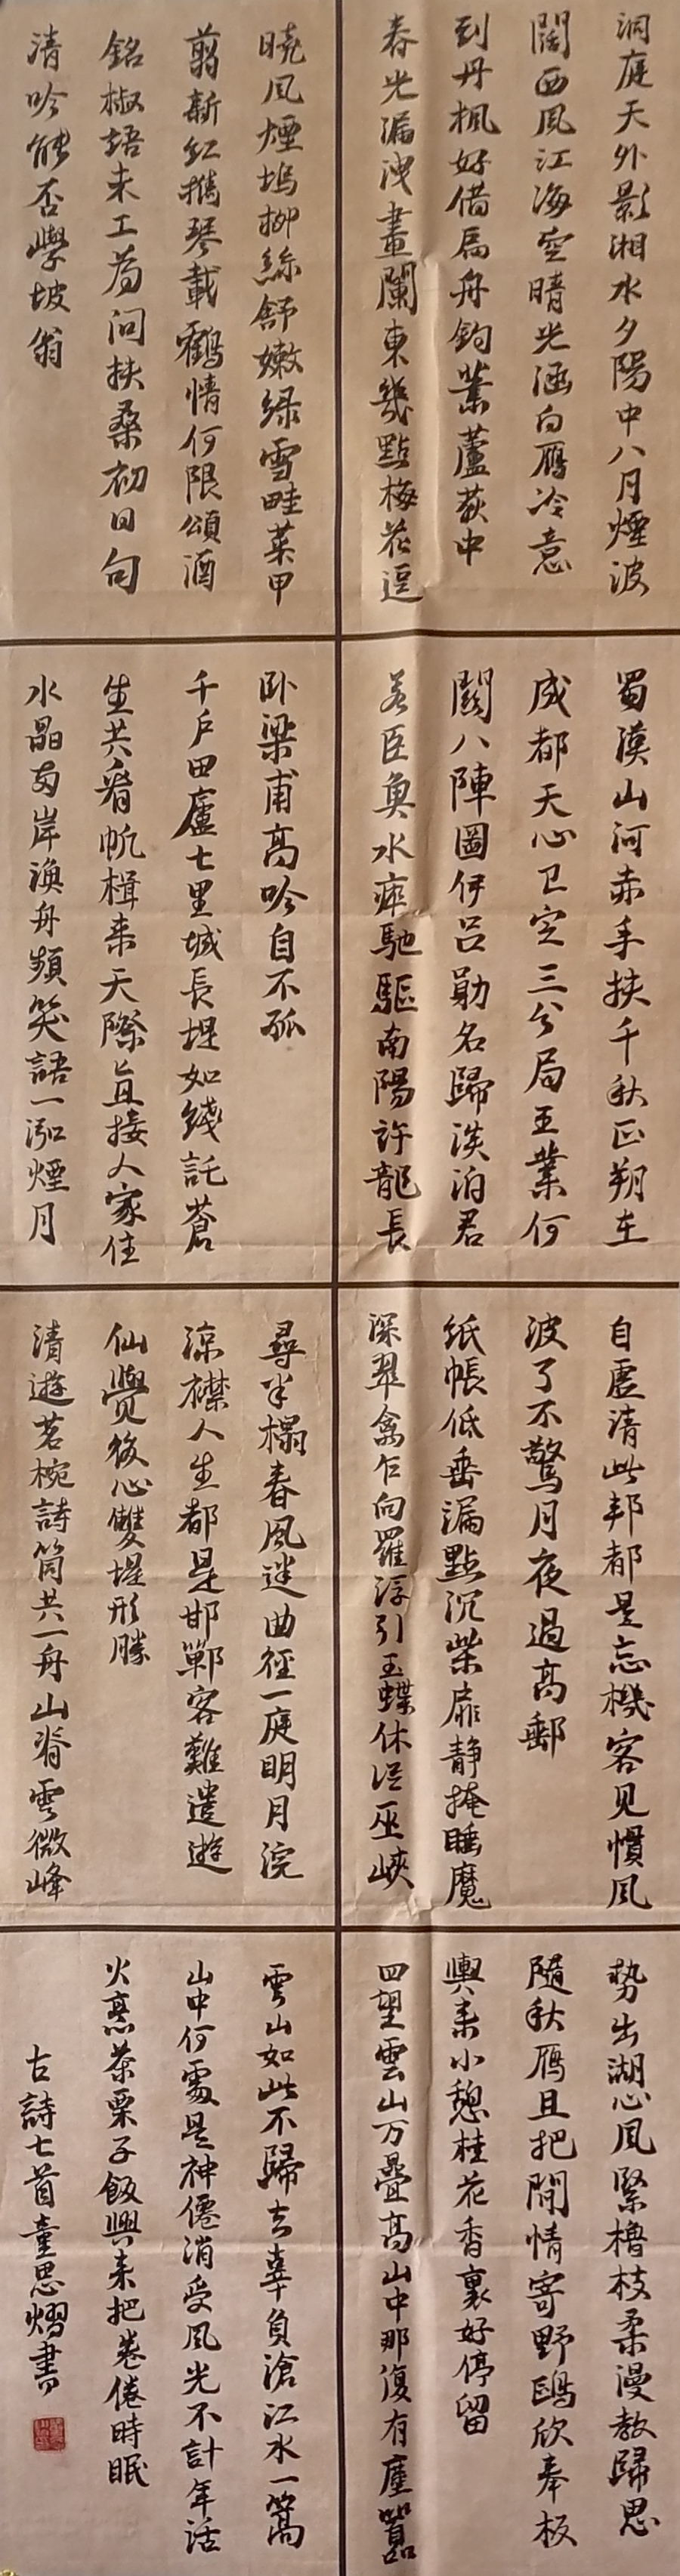 洞庭天外影湘水夕陽中八月煙波
闊西风江海空晴光涵白雁冷意
到丹楓好借扁舟鈎業蘆荻中
春光漏洩畫闌東幾點梅花逗
曉风煙塢柳絲舒嫩绿雪畦菜甲
翦新红携琴載鶴情何限頌酒
銘椒語未工為问扶桑初日句
清吟能否學坡翁
蜀漢山河赤手扶千秋正朔在
成都天心已定三分局王業何
關八陣圖伊吕勛名歸淡泊君
若臣魚水瘁馳驅南陽許龍長
卧梁甫高吟自不孤
千户田廬七里城長堤如綫託蒼
生共看帆楫来天際直接人家住
水晶两岸漁舟頻笑語一泓煙月
自虚清此邦都是忘機客见慣风
波了不驚月夜過高郵
纸帳低垂漏點沉柴扉静掩睡魔
深翠禽乍向羅浮引玉蝶休從巫峡
尋半榻春风迷曲徑一庭明月浣
涼襟人生都是邯鄲客難遣遊
仙覺後心雙堤形勝
清遊茗椀詩筒共一舟山脊雲微峰
勢出湖心风緊櫓枝柔漫教歸思
隨秋雁且把閒情寄野鷗欣奉板
輿来小憩桂花香裏好停留
四望雲山万疊高山中那復有塵囂
雲山如此不歸去辜負滄江水一篙
山中何處是神僊消受风光不計年活
火烹茶栗子飯興来把卷倦時眠
古詩七首童思熠書